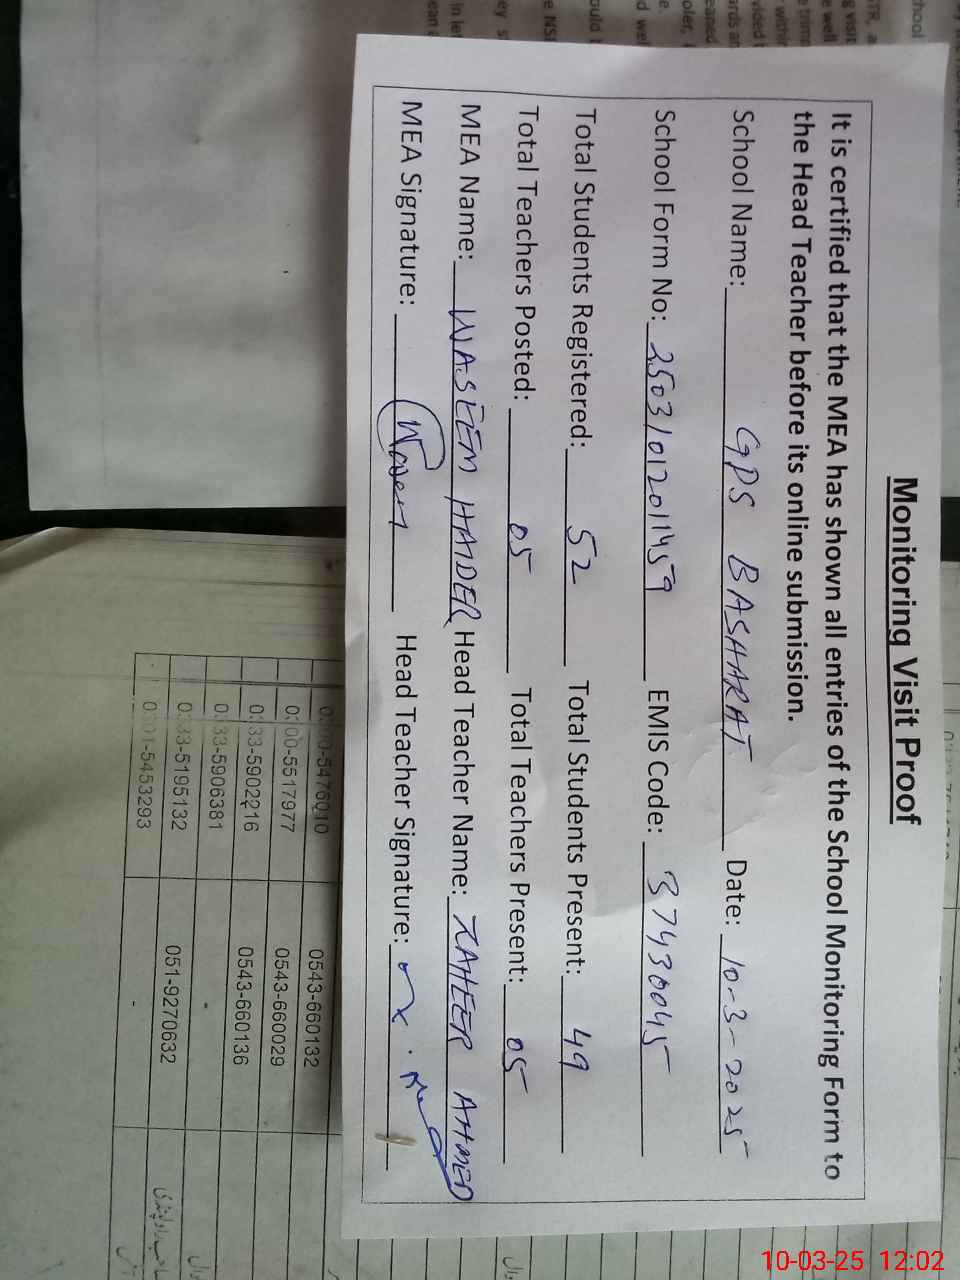 Monitoring Visit Proof
It is certified that the MEA has shown all entries of the School Monitoring Form to
the Head Teacher before its online submission.
School Name: GPS BASHARAT Date: 10-3-2025
School Form No: 25031012011459 EMIS Code: 37430045
Total Students Registered: 52 Total Students Present: 49
Total Teachers Posted: 05 Total Teachers Present: 05
MEA Name: WASEEM HAIDER Head Teacher Name: ZAHEER AHMED
MEA Signature: Waseem Head Teacher Signature:
5476010 0543-660132
00-5517977 0543-660029
33-5902216 0543-660136
33-5906381 -
33-5195132 051-9270632
01-5453293 -
10-03-25 12:02